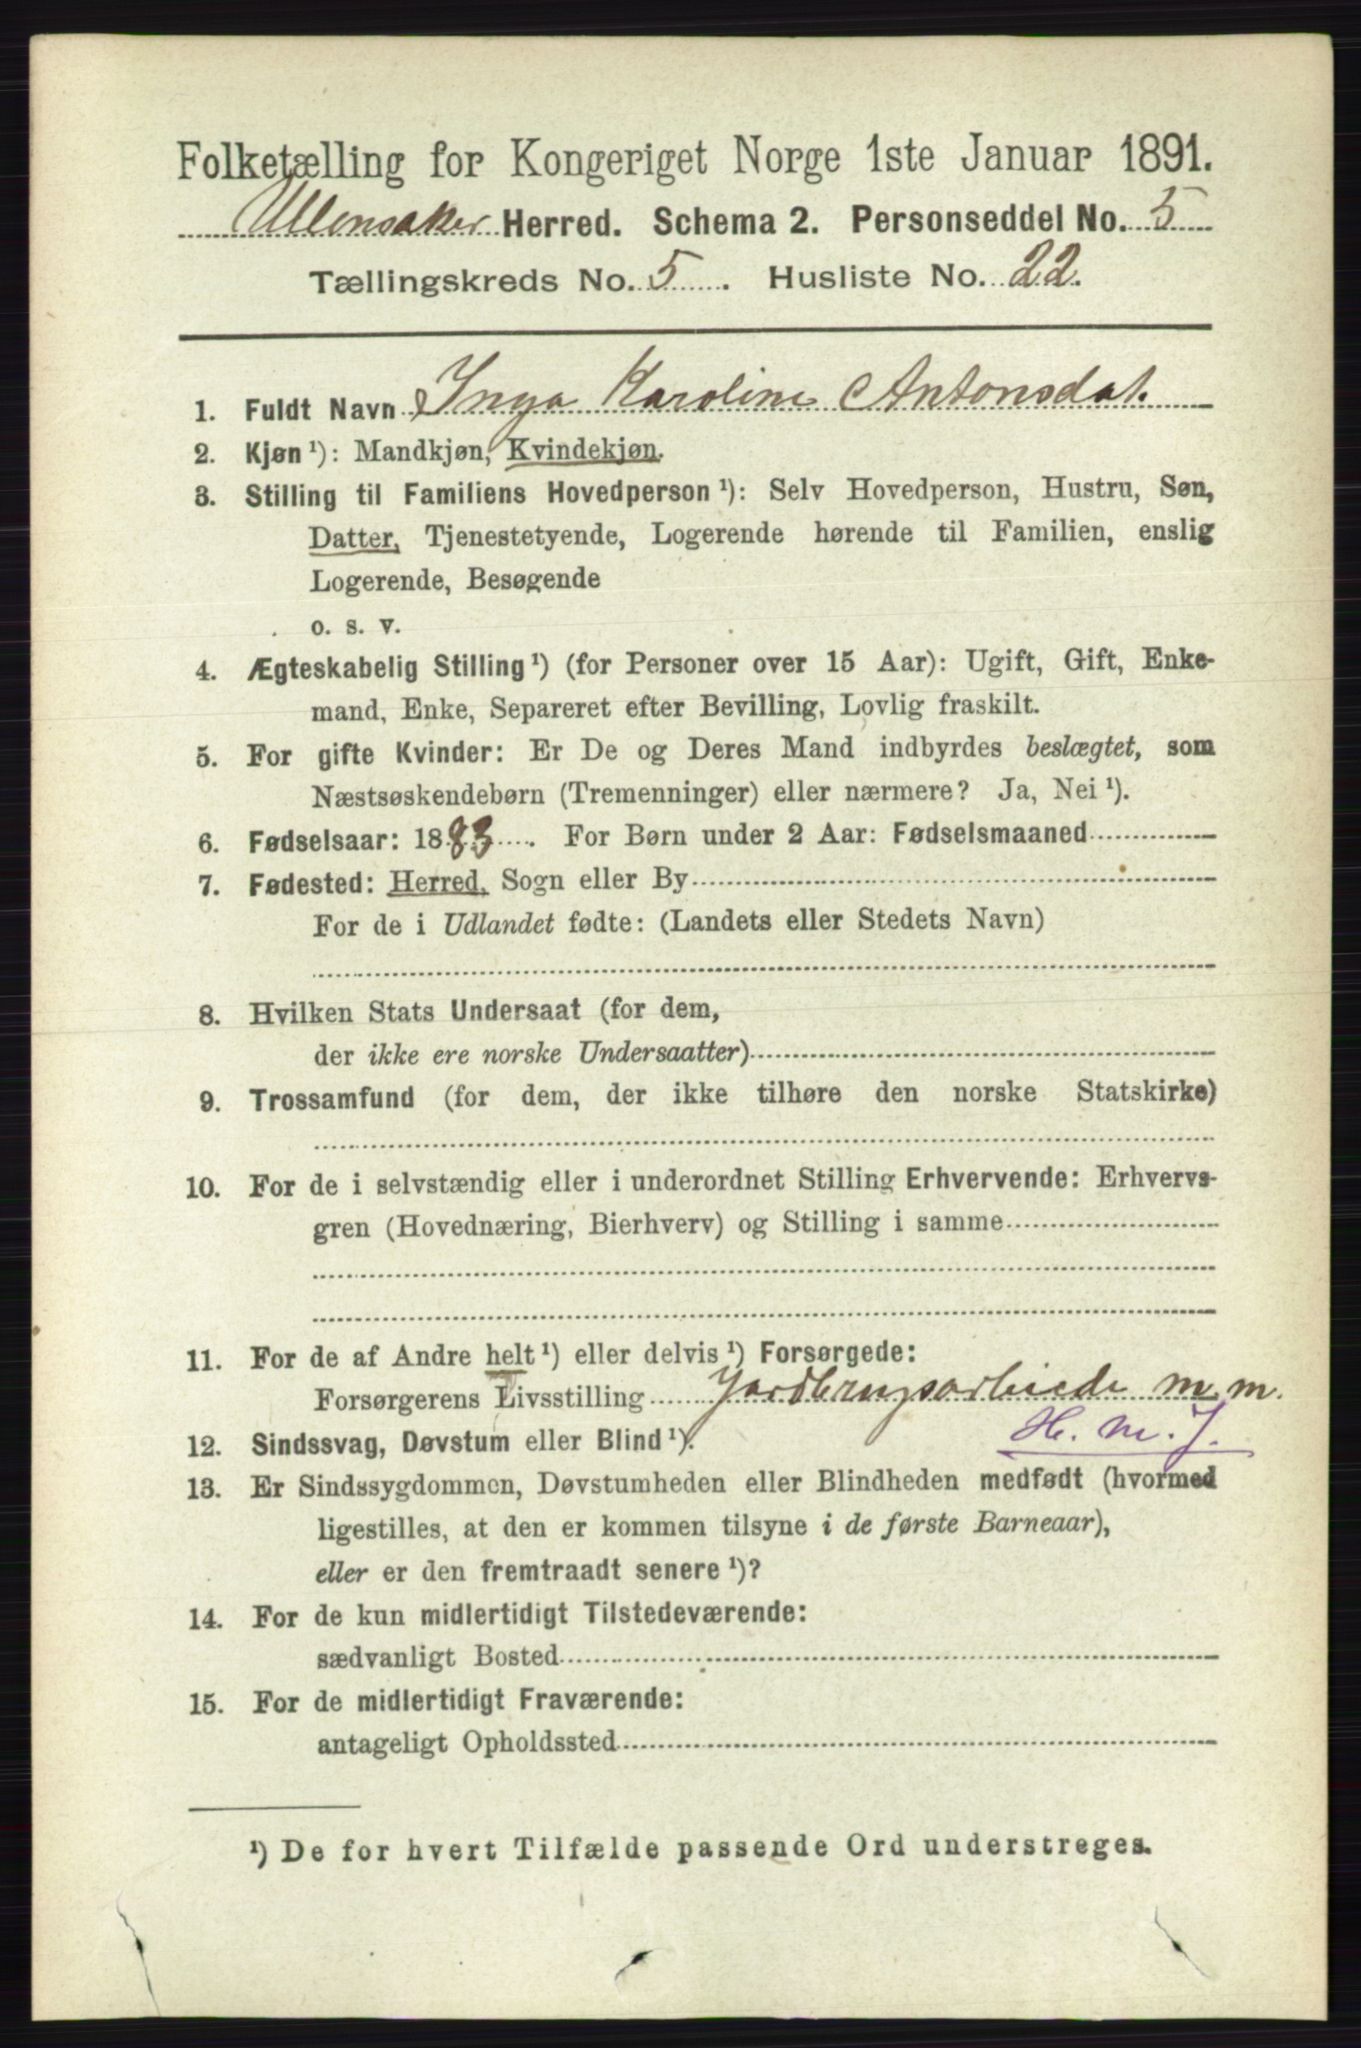 Folketælling for Kongeriget Norge 1ste Januar 1891.
Ullensaker Herred. Schema 2. Personseddel No. 5
Tællingskreds No. 5. Husliste No. 22.
1. Fuldt Navn Inga Karoline Antonsdat.
2. Kjøn ¹): Mandkjøn, Kvindekjøn.
3. Stilling til Familiens Hovedperson ¹): Selv Hovedperson, Hustru, Søn,
Datter, Tjenestetyende, Logerende hørende til Familien, enslig
Logerende, Besøgende
o. s. v.
4. Ægteskabelig Stilling ¹) (for Personer over 15 Aar): Ugift, Gift, Enke-
mand, Enke, Separeret efter Bevilling, Lovlig fraskilt.
5. For gifte Kvinder: Er De og Deres Mand indbyrdes beslægtet, som
Næstsøskendebørn (Tremenninger) eller nærmere? Ja, Nei ¹).
6. Fødselsaar: 1883. For Børn under 2 Aar: Fødselsmaaned
7. Fødested: Herred, Sogn eller By
For de i Udlandet fødte: (Landets eller Stedets Navn)
8. Hvilken Stats Undersaat (for dem,
der ikke ere norske Undersaatter)
9. Trossamfund (for dem, der ikke tilhøre den norske Statskirke)
10. For de i selvstændig eller i underordnet Stilling Erhvervende: Erhvervs-
gren (Hovednæring, Bierhverv) og Stilling i samme
11. For de af Andre helt ¹) eller delvis ¹) Forsørgede:
Forsørgerens Livsstilling Jordbrugsarbeide m. m.
H. m. J.
12. Sindssvag, Døvstum eller Blind ¹).
13. Er Sindssygdommen, Døvstumheden eller Blindheden medfødt (hvormed
ligestilles, at den er kommen tilsyne i de første Barneaar),
eller er den fremtraadt senere ¹)?
14. For de kun midlertidigt Tilstedeværende:
sædvanligt Bosted
15. For de midlertidigt Fraværende:
antageligt Opholdssted
¹) De for hvert Tilfælde passende Ord understreges.